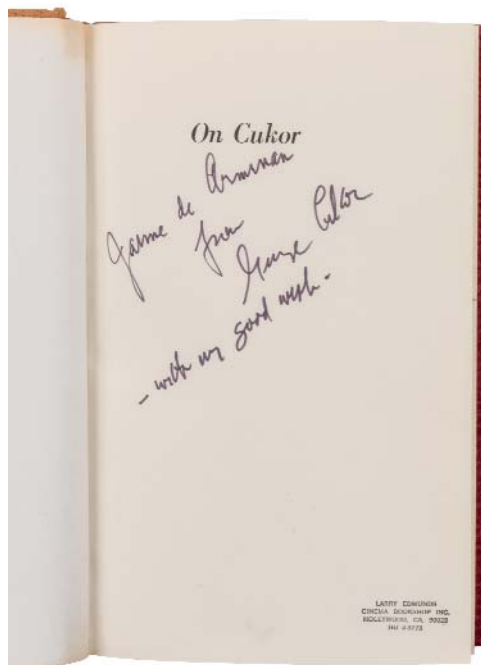 On Cukor
Jaime de Arminan
from
George Cukor
- with my good wish -
LARRY EDMUNDS
CINEMA BOOKSHOP INC.
HOLLYWOOD, CA. 90028
HO 3-3273